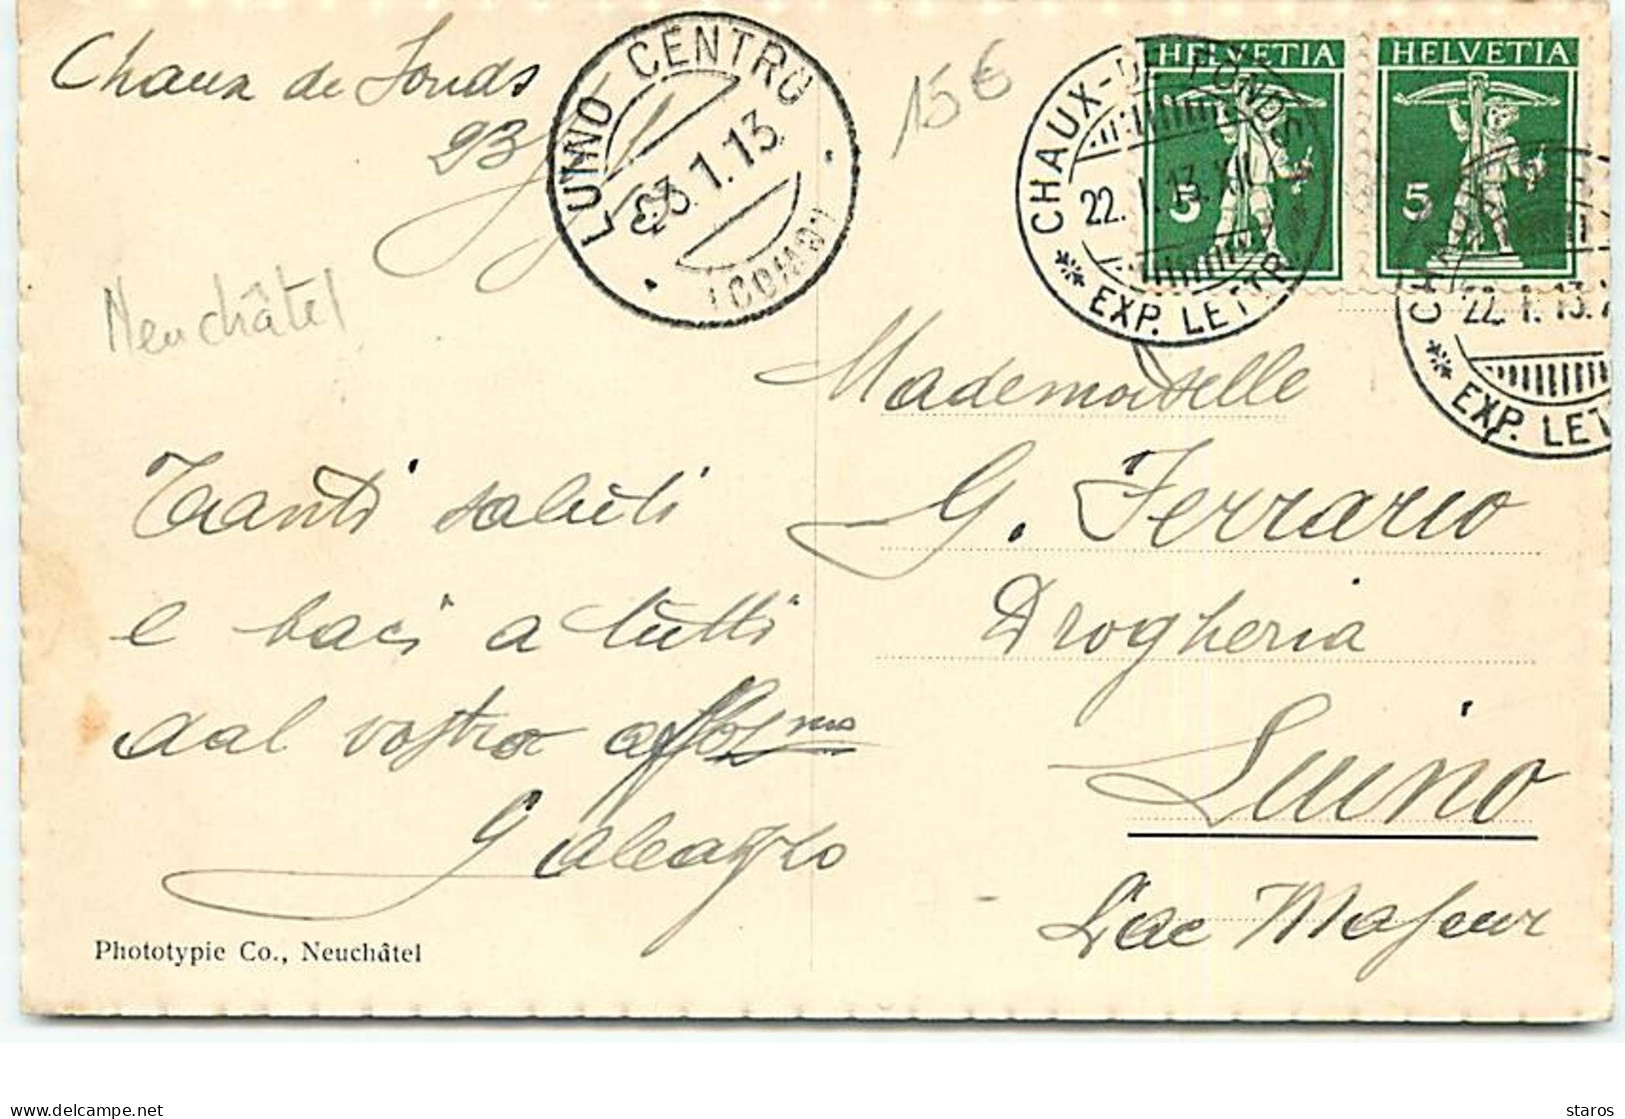 Chaux de Fonds
23
LUINO CENTRO
23.1.13
(COMO)
15€
HELVETIA
5
HELVETIA
5
CHAUX-DE-FONDS
22.I.13.XII
EXP. LETTR.
22.I.13.
EXP. LET
Neuchâtel
Tanti saluti
e baci a tutti
dal vostro affmo
Galeazzo
Mademoiselle
G. Ferrario
Drogheria
Luino
Lac Majeur
Phototypie Co., Neuchâtel
delcampe.net
staros